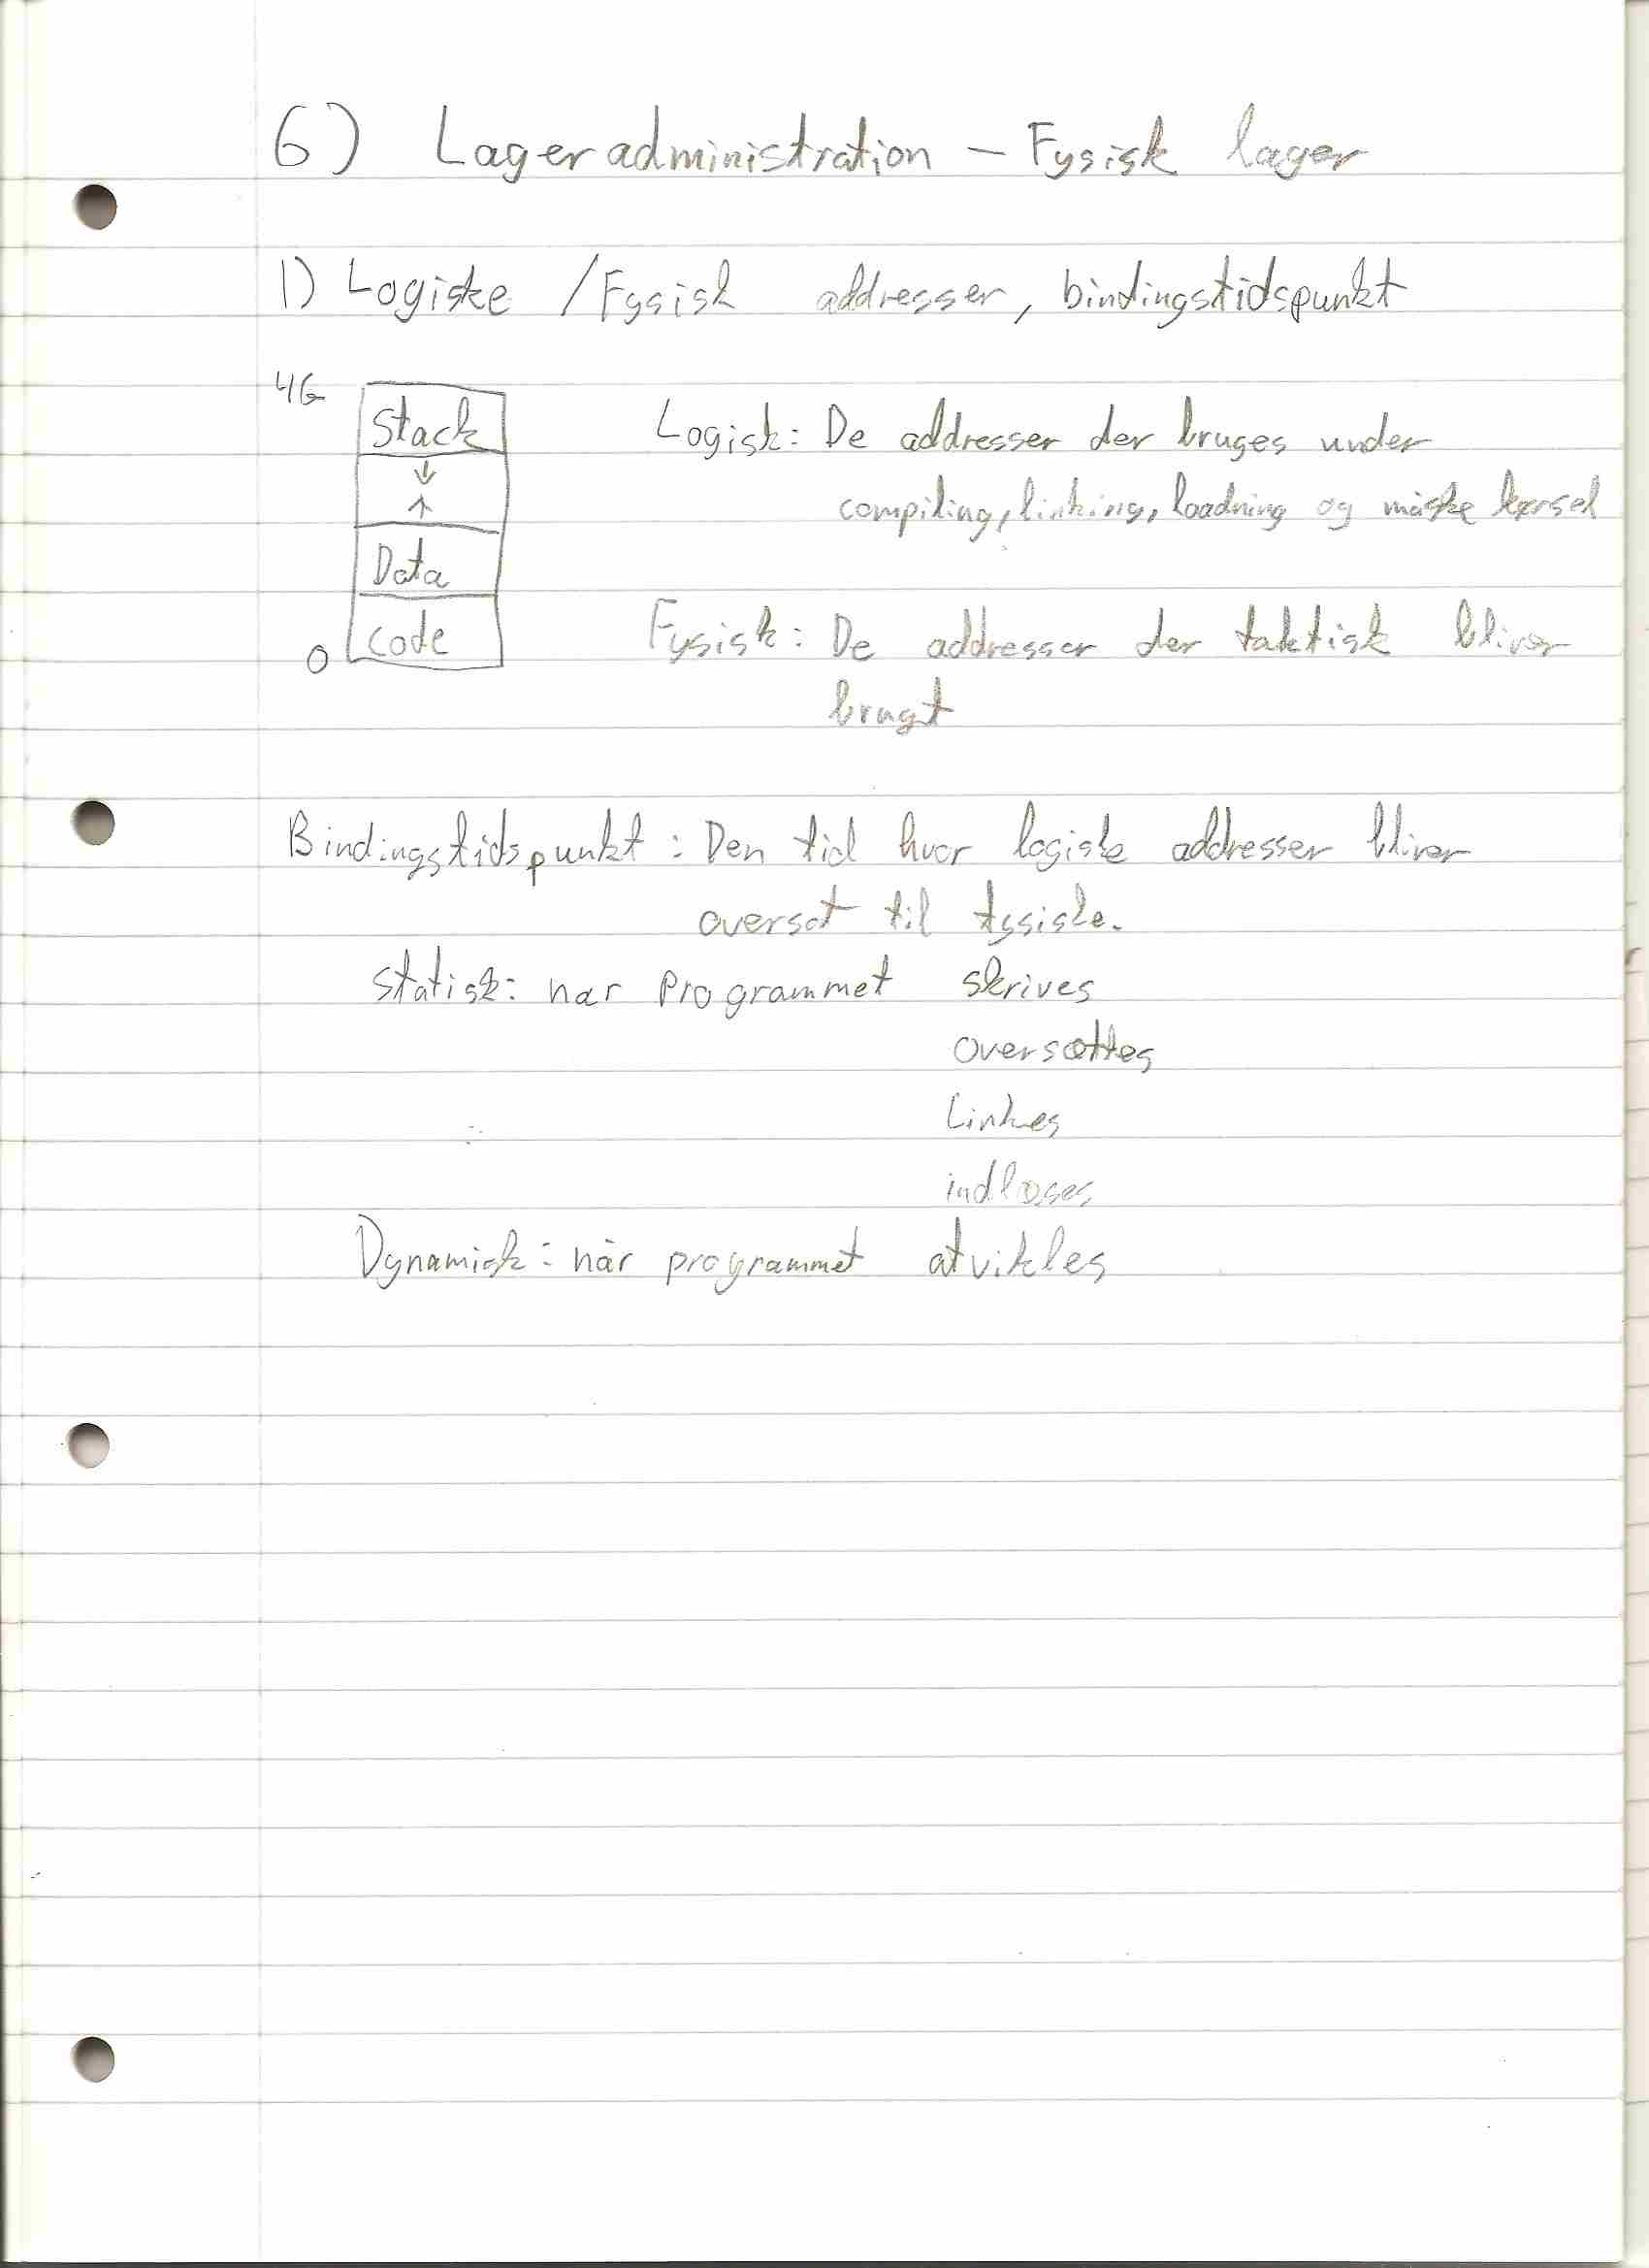 6) Lageradministration – Fysisk lager
1) Logiske / Fysisk addresser, bindingstidspunkt
4G
Stack
↓
↑
Data
code
0
Logisk: De addresser der bruges under
compiling, linking, loadning og måske kørsel
Fysisk: De addresser der faktisk bliver
brugt
Bindingstidspunkt: Den tid hvor logiske addresser bliver
oversat til fysiske.
Statisk: når Programmet skrives
oversættes
Linkes
indlæses
Dynamisk: når programmet afvikles